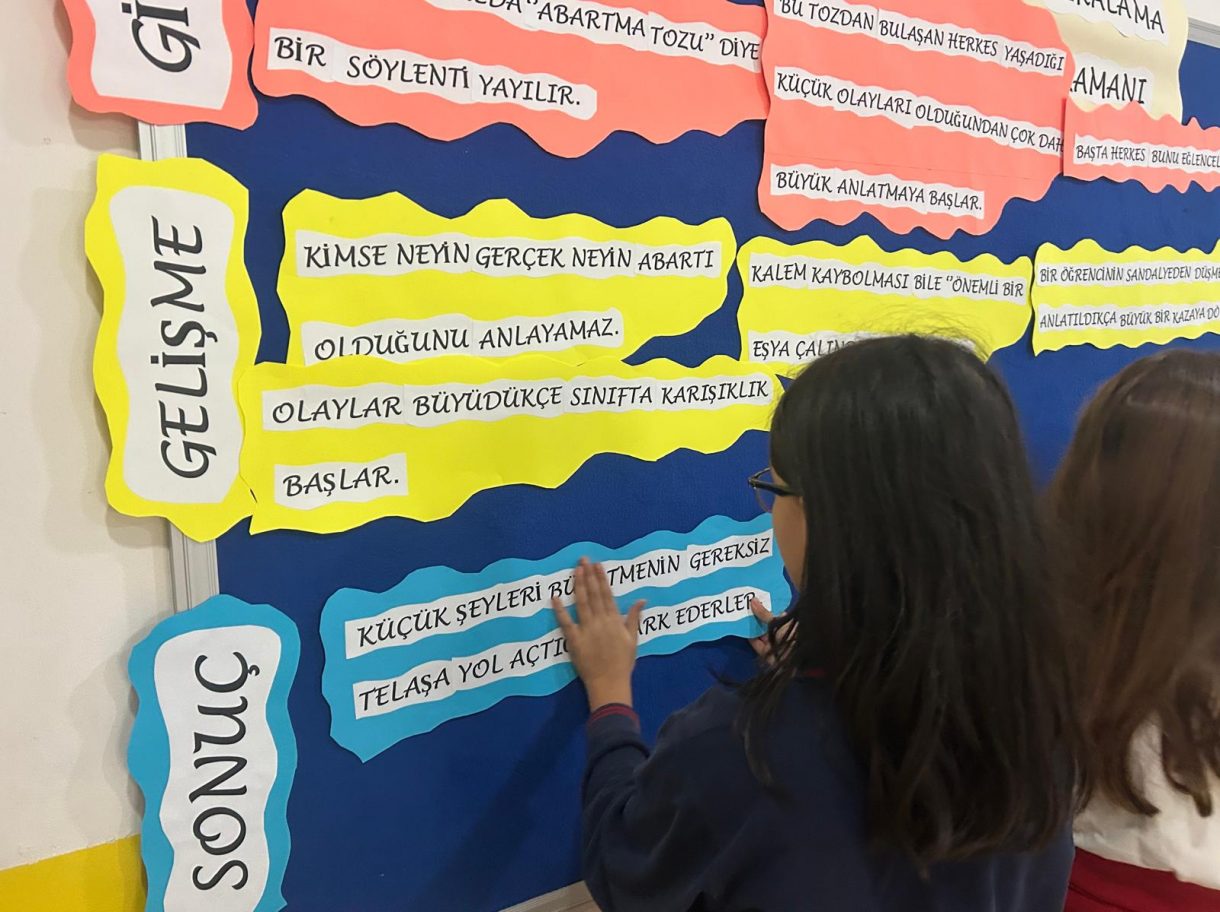 Gİ
"ABARTMA TOZU" DİYE
BİR SÖYLENTİ YAYILIR.
BU TOZDAN BULAŞAN HERKES YAŞADIĞI
KÜÇÜK OLAYLARI OLDUĞUNDAN ÇOK DAH
BÜYÜK ANLATMAYA BAŞLAR.
BAŞTA HERKES BUNU EĞLENCEL
GELİŞME
KİMSE NEYİN GERÇEK NEYİN ABARTI
OLDUĞUNU ANLAYAMAZ.
KALEM KAYBOLMASI BİLE "ÖNEMLİ BİR
EŞYA
BİR ÖĞRENCİNİN SANDALYEDEN DÜŞME
ANLATILDIKÇA BÜYÜK BİR KAZAYA DÖ
OLAYLAR BÜYÜDÜKÇE SINIFTA KARIŞIKLIK
BAŞLAR.
SONUÇ
KÜÇÜK ŞEYLERİ GEREKSİZ
TELAŞA YOL EDERLER.